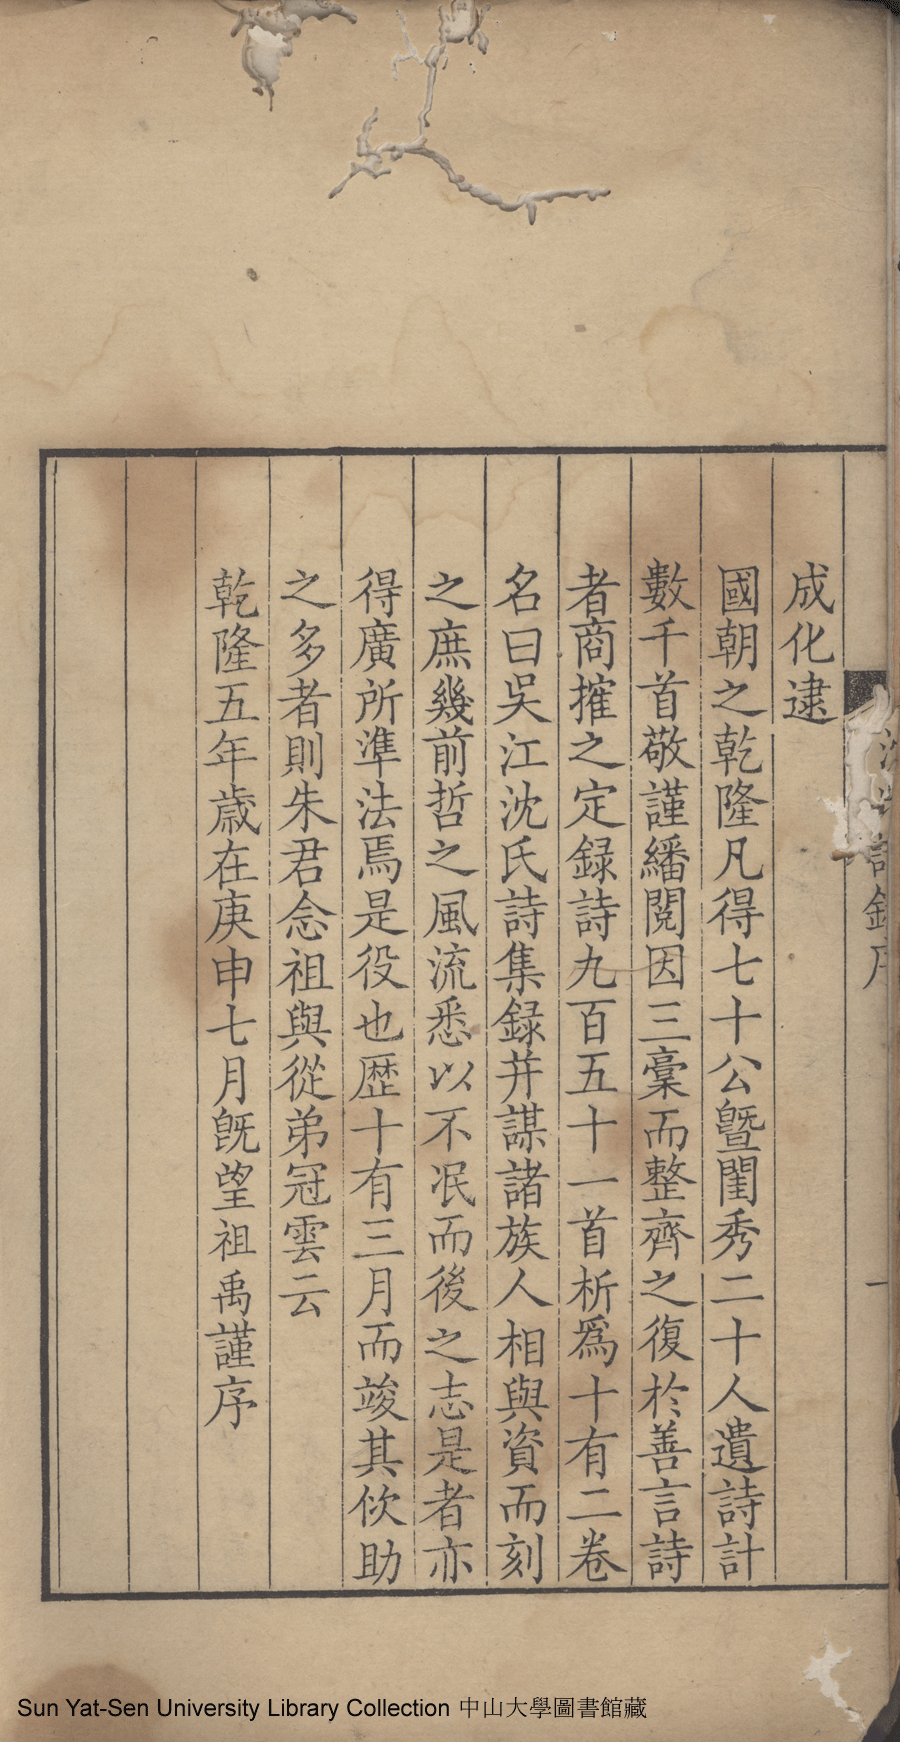 成化逮
國朝之乾隆凡得七十公曁閨秀二十人遺詩計
數千首敬謹繙閱因三稾而整齊之復於善言詩
者商搉之定録詩九百五十一首析爲十有二卷
名曰吳江沈氏詩集録并謀諸族人相與資而刻
之庶幾前哲之風流悉以不泯而後之志是者亦
得廣所準法焉是役也歴十有三月而竣其佽助
之多者則朱君念祖與從弟冠雲云
乾隆五年歳在庚申七月旣望祖禹謹序
詩録序
一
Sun Yat-Sen University Library Collection 中山大學圖書館藏